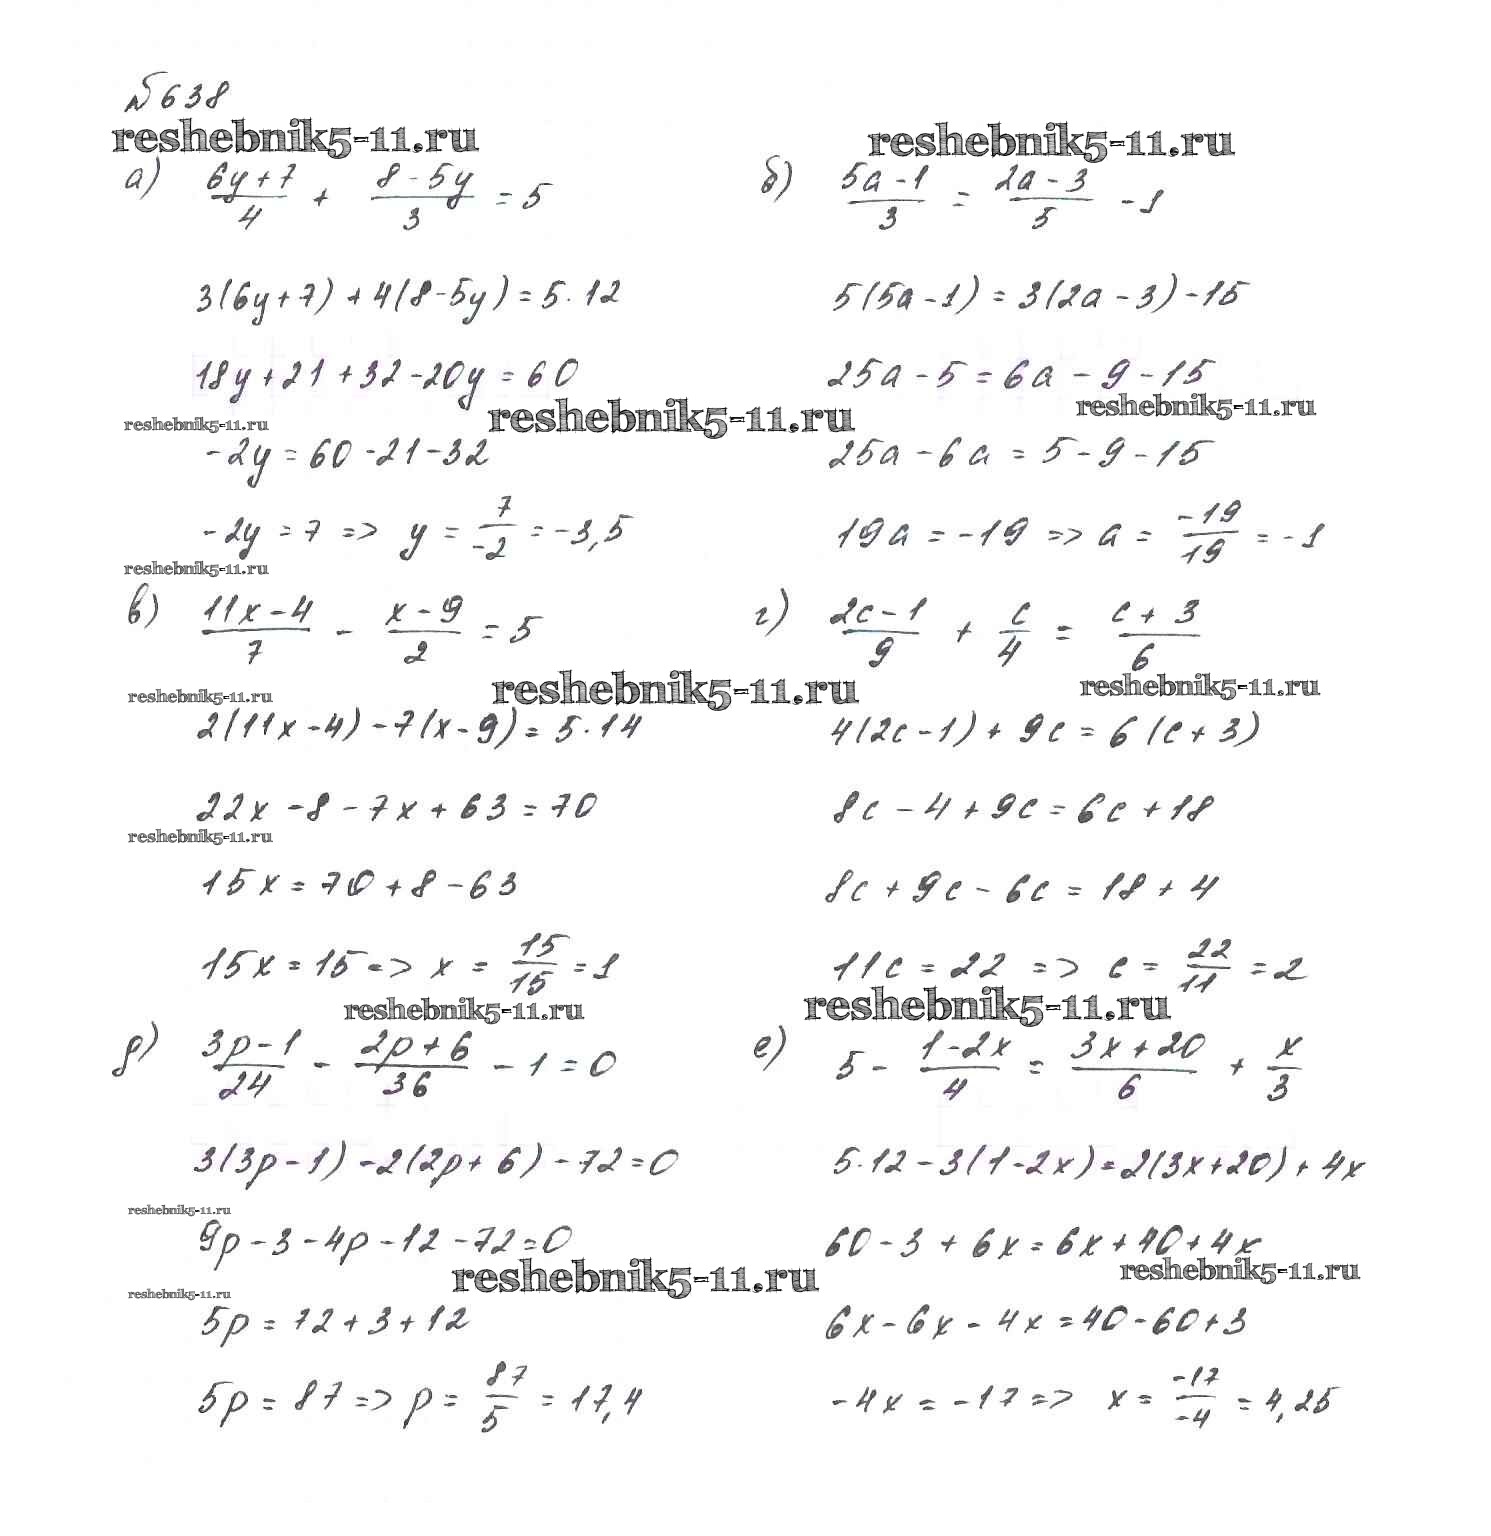 № 638
reshebnik5-11.ru
reshebnik5-11.ru
а) (6y+7)/4 + (8-5y)/3 = 5
3(6y+7)+4(8-5y)=5·12
18y+21+32-20y=60
reshebnik5-11.ru
reshebnik5-11.ru
-2y=60-21-32
-2y=7 => y=7/-2=-3,5
reshebnik5-11.ru
б) (5a-1)/3 = (2a-3)/5 -1
5(5a-1)=3(2a-3)-15
25a-5=6a-9-15
reshebnik5-11.ru
25a-6a=5-9-15
19a=-19 => a=-19/19=-1
в) (11x-4)/7 - (x-9)/2 = 5
reshebnik5-11.ru
reshebnik5-11.ru
2(11x-4)-7(x-9)=5·14
22x-8-7x+63=70
reshebnik5-11.ru
15x=70+8-63
15x=15 => x=15/15=1
reshebnik5-11.ru
г) (2c-1)/9 + c/4 = (c+3)/6
reshebnik5-11.ru
4(2c-1)+9c=6(c+3)
8c-4+9c=6c+18
8c+9c-6c=18+4
11c=22 => c=22/11=2
reshebnik5-11.ru
д) (3p-1)/24 - (2p+6)/36 -1=0
3(3p-1)-2(2p+6)-72=0
reshebnik5-11.ru
9p-3-4p-12-72=0
reshebnik5-11.ru
reshebnik5-11.ru
5p=72+3+12
5p=87 => p=87/5=17,4
е) 5- (1-2x)/4 = (3x+20)/6 + x/3
5·12-3(1-2x)=2(3x+20)+4x
60-3+6x=6x+40+4x
reshebnik5-11.ru
6x-6x-4x=40-60+3
-4x=-17 => x=-17/-4=4,25